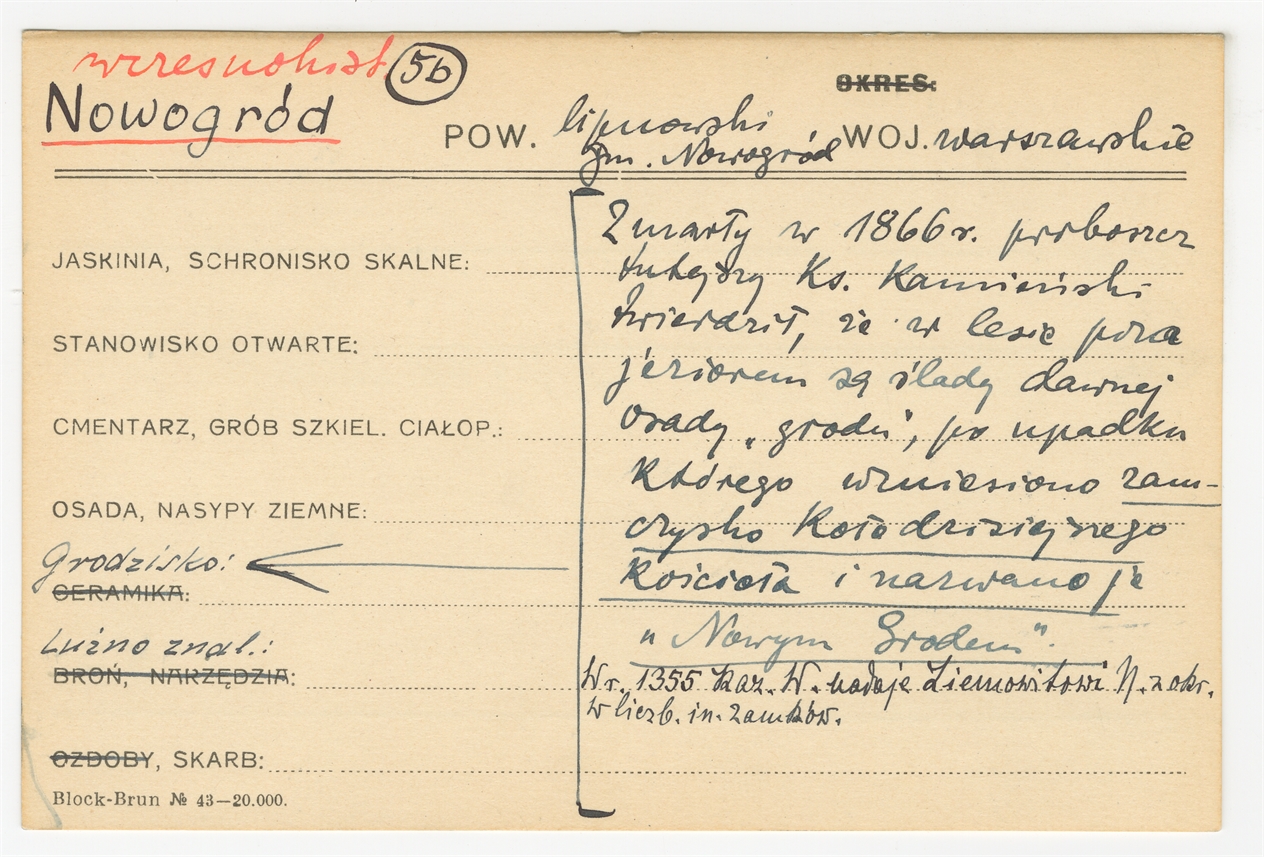 wczesnohist.
5b
Nowogród
OKRES:
POW. lipnowski WOJ. warszawskie
gm. Nowogród
Zmarły w 1866 r. proboszcz
JASKINIA, SCHRONISKO SKALNE:
tutejszy Ks. Kamieński
twierdził, że w lesie poza
STANOWISKO OTWARTE:
jeziorem są ślady dawnej
CMENTARZ, GRÓB SZKIEL. CIAŁOP.:
osady „grodu", po upadku
którego wzniesiono zam-
OSADA, NASYPY ZIEMNE:
czysko koło dzisiejszego
Grodzisko:
CERAMIKA:
kościoła i nazwano je
Luźno znal.:
„Nowym Grodem".
BROŃ, NARZĘDZIA:
W r. 1355 Kaz. W. nadaje Ziemowitowi N. z okr.
w liczb. in. zamków.
OZDOBY, SKARB:
Block-Brun № 43—20.000.